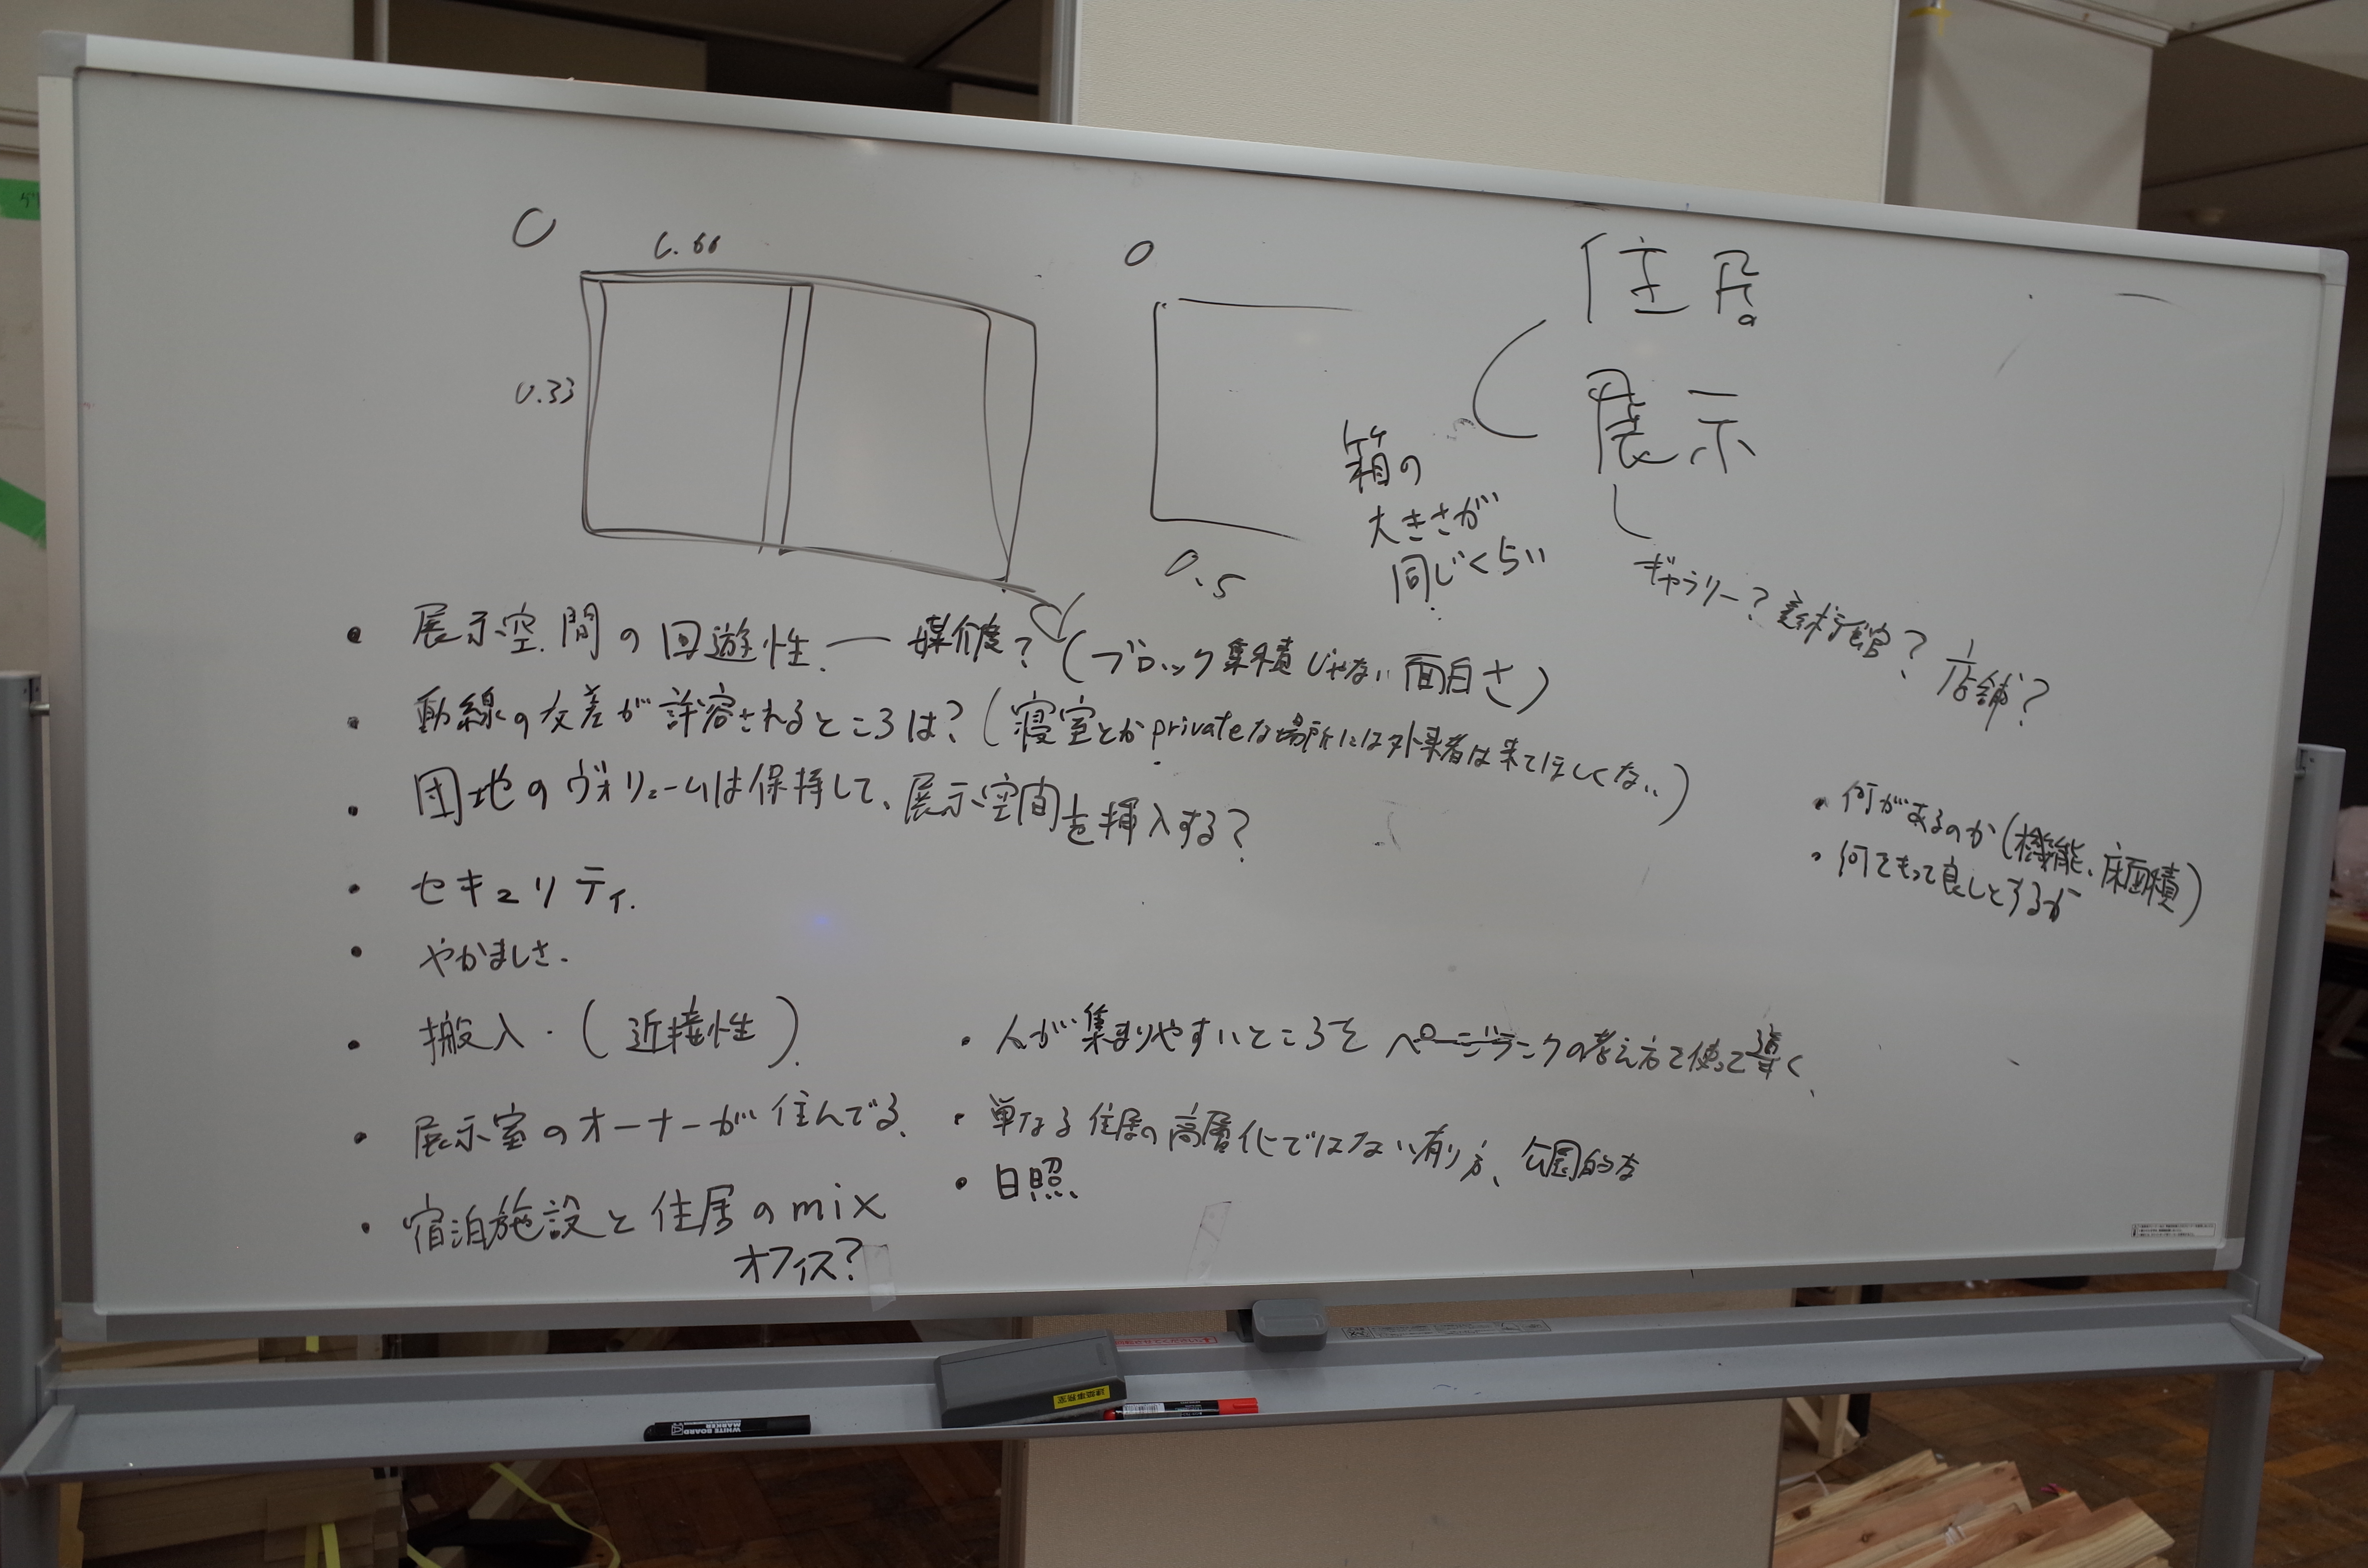 0
0.66
0.33
0
0.5
住居
展示
箱の
大きさが
同じくらい
ギャラリー？美術館？店舗？
・展示空間の回遊性 — 媒介度？（ブロック集積じゃない面白さ）
・動線の交差が許容されるところは？（寝室とかprivateな場所には外来者は来てほしくない）
・団地のヴォリュームは保持して、展示空間を挿入する？
・セキュリティ.
・やかましさ.
・搬入・（近接性）.
・展示室のオーナーが住んでる.
・宿泊施設と住居のmix
オフィス？
・何があるのか（機能、床面積）
・何でもって良しとするか
・人が集まりやすいところをページランクの考え方で使って導く
・単なる住居の高層化ではない有り方、公園的な
・日照
WHITE BOARD
MARKER